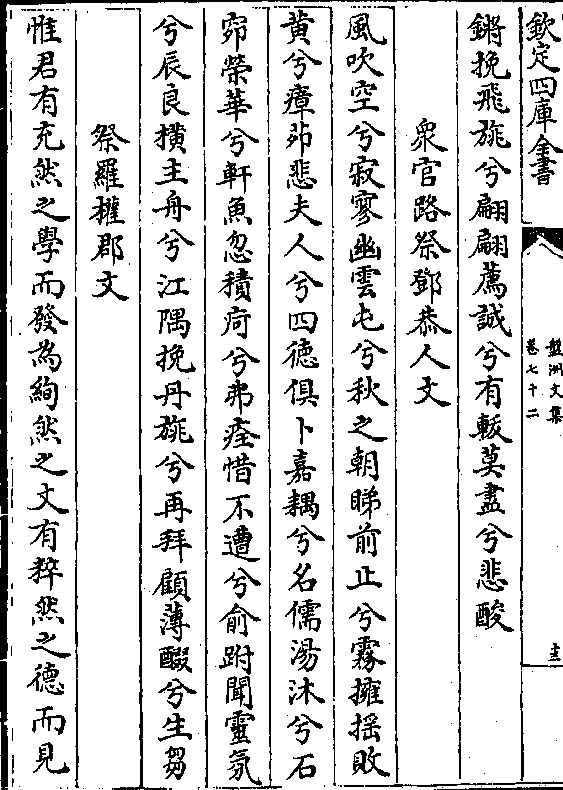 欽定四庫全書
盤洲文集
卷七十二
十三
鏘挽飛旐兮翩翩薦誠兮有輀莫盡兮悲酸
衆官路祭鄧恭人文
風吹空兮寂寥幽雲屯兮秋之朝睇前止兮霧擁揺敗
黄兮瘴茆悲夫人兮四徳俱卜嘉耦兮名儒湯沐兮石
窌榮華兮軒魚忽積疴兮弗痊惜不遭兮俞跗聞靈氛
兮辰良撗主舟兮江隅挽丹旐兮再拜顧薄醊兮生芻
祭羅權郡文
惟君有充然之學而發為絢然之文有粹然之德而見